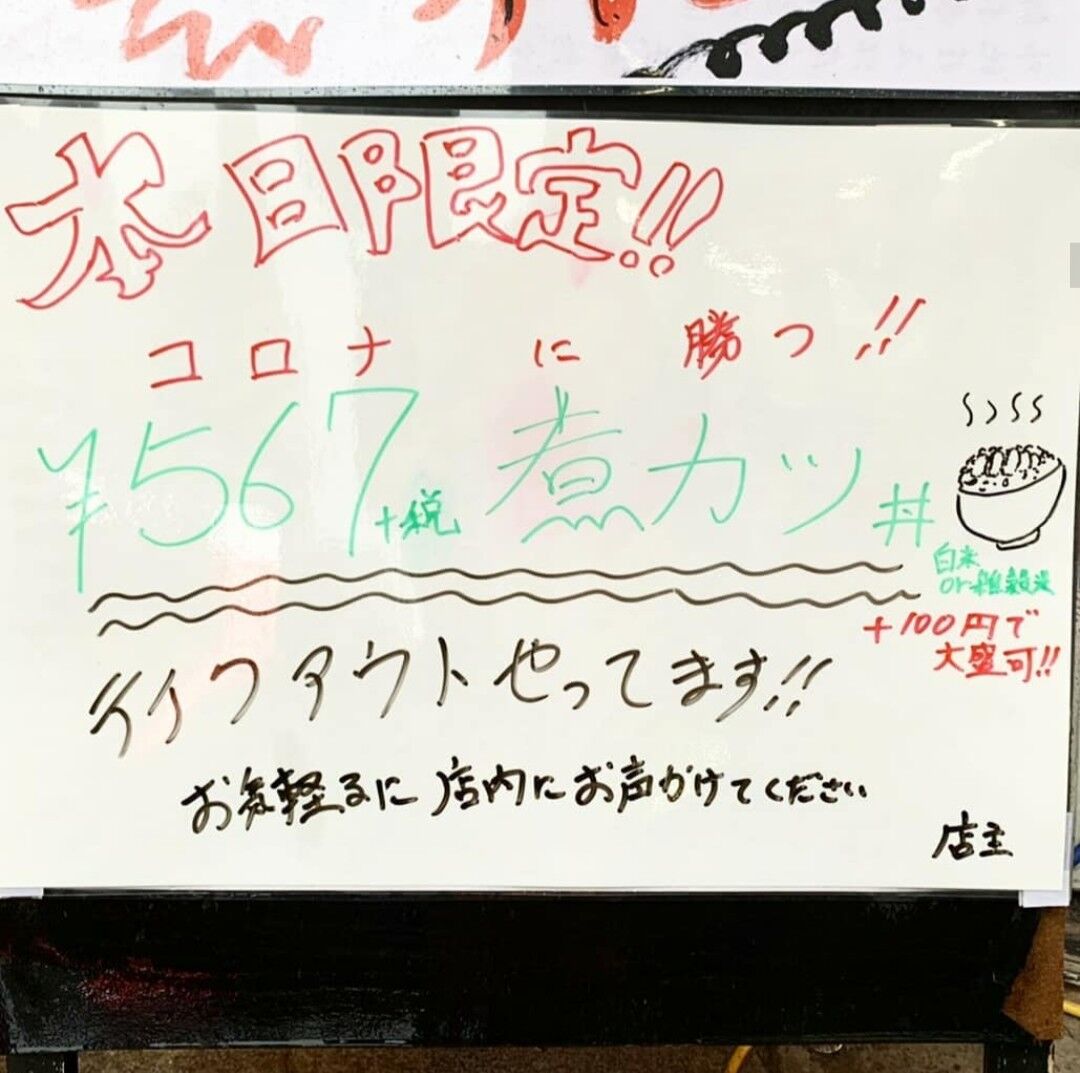 本日限定!!
コロナに勝つ!!
¥567+税 煮カツ丼
白米
or雑穀米
+100円で
大盛可!!
テイクアウトやってます!!
お気軽るに店内にお声かけてください
店主